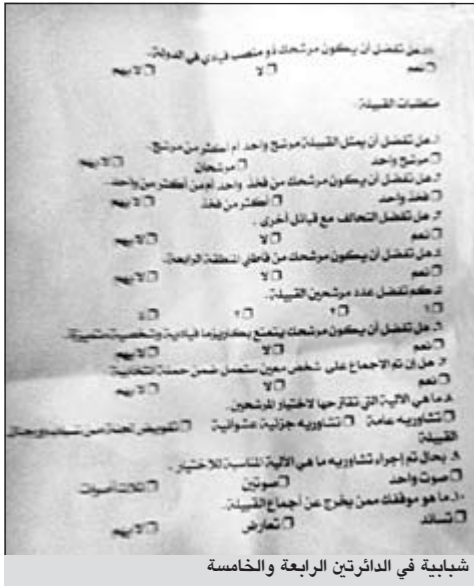 هل تفضل أن يكون مرشحك ذو منصب قيادي في الدولة.
نعم لا لا يهم
متطلبات القبيلة
١. هل تفضل أن يمثل القبيلة مرشح واحد أم أكثر من مرشح.
مرشح واحد مرشحان لا يهم
٢. هل تفضل أن يكون مرشحك من فخذ واحد أم من أكثر من واحد.
فخذ واحد أكثر من فخذ لا يهم
٣. هل تفضل التحالف مع قبائل أخرى.
نعم لا لا يهم
٤. هل تفضل أن يكون مرشحك من قاطني المنطقة الرابعة.
نعم لا لا يهم
٥. كم تفضل عدد مرشحين القبيلة.
١ ٢ ٣ ٤
٦. هل تفضل أن يكون مرشحك يتمتع بكاريزما قيادية وشخصية متميزة.
نعم لا لا يهم
٧. هل إن تم الاجماع على شخص معين ستعمل ضمن حملة انتخابية
نعم لا لا يهم
٨. ما هي الآلية التي تقترحها لاختيار المرشحين.
تشاوريه عامة تشاوريه جزئية عشوائية تفويض لجنة من شباب ورجال
القبيلة
٩. بحال تم إجراء تشاوريه ما هي الآلية المناسبة للاختيار.
صوت واحد صوتين ثلاث أصوات
١٠. ما هو موقفك ممن يخرج عن أجماع القبيلة.
تساند تعارض لا يهم
شبابية في الدائرتين الرابعة والخامسة